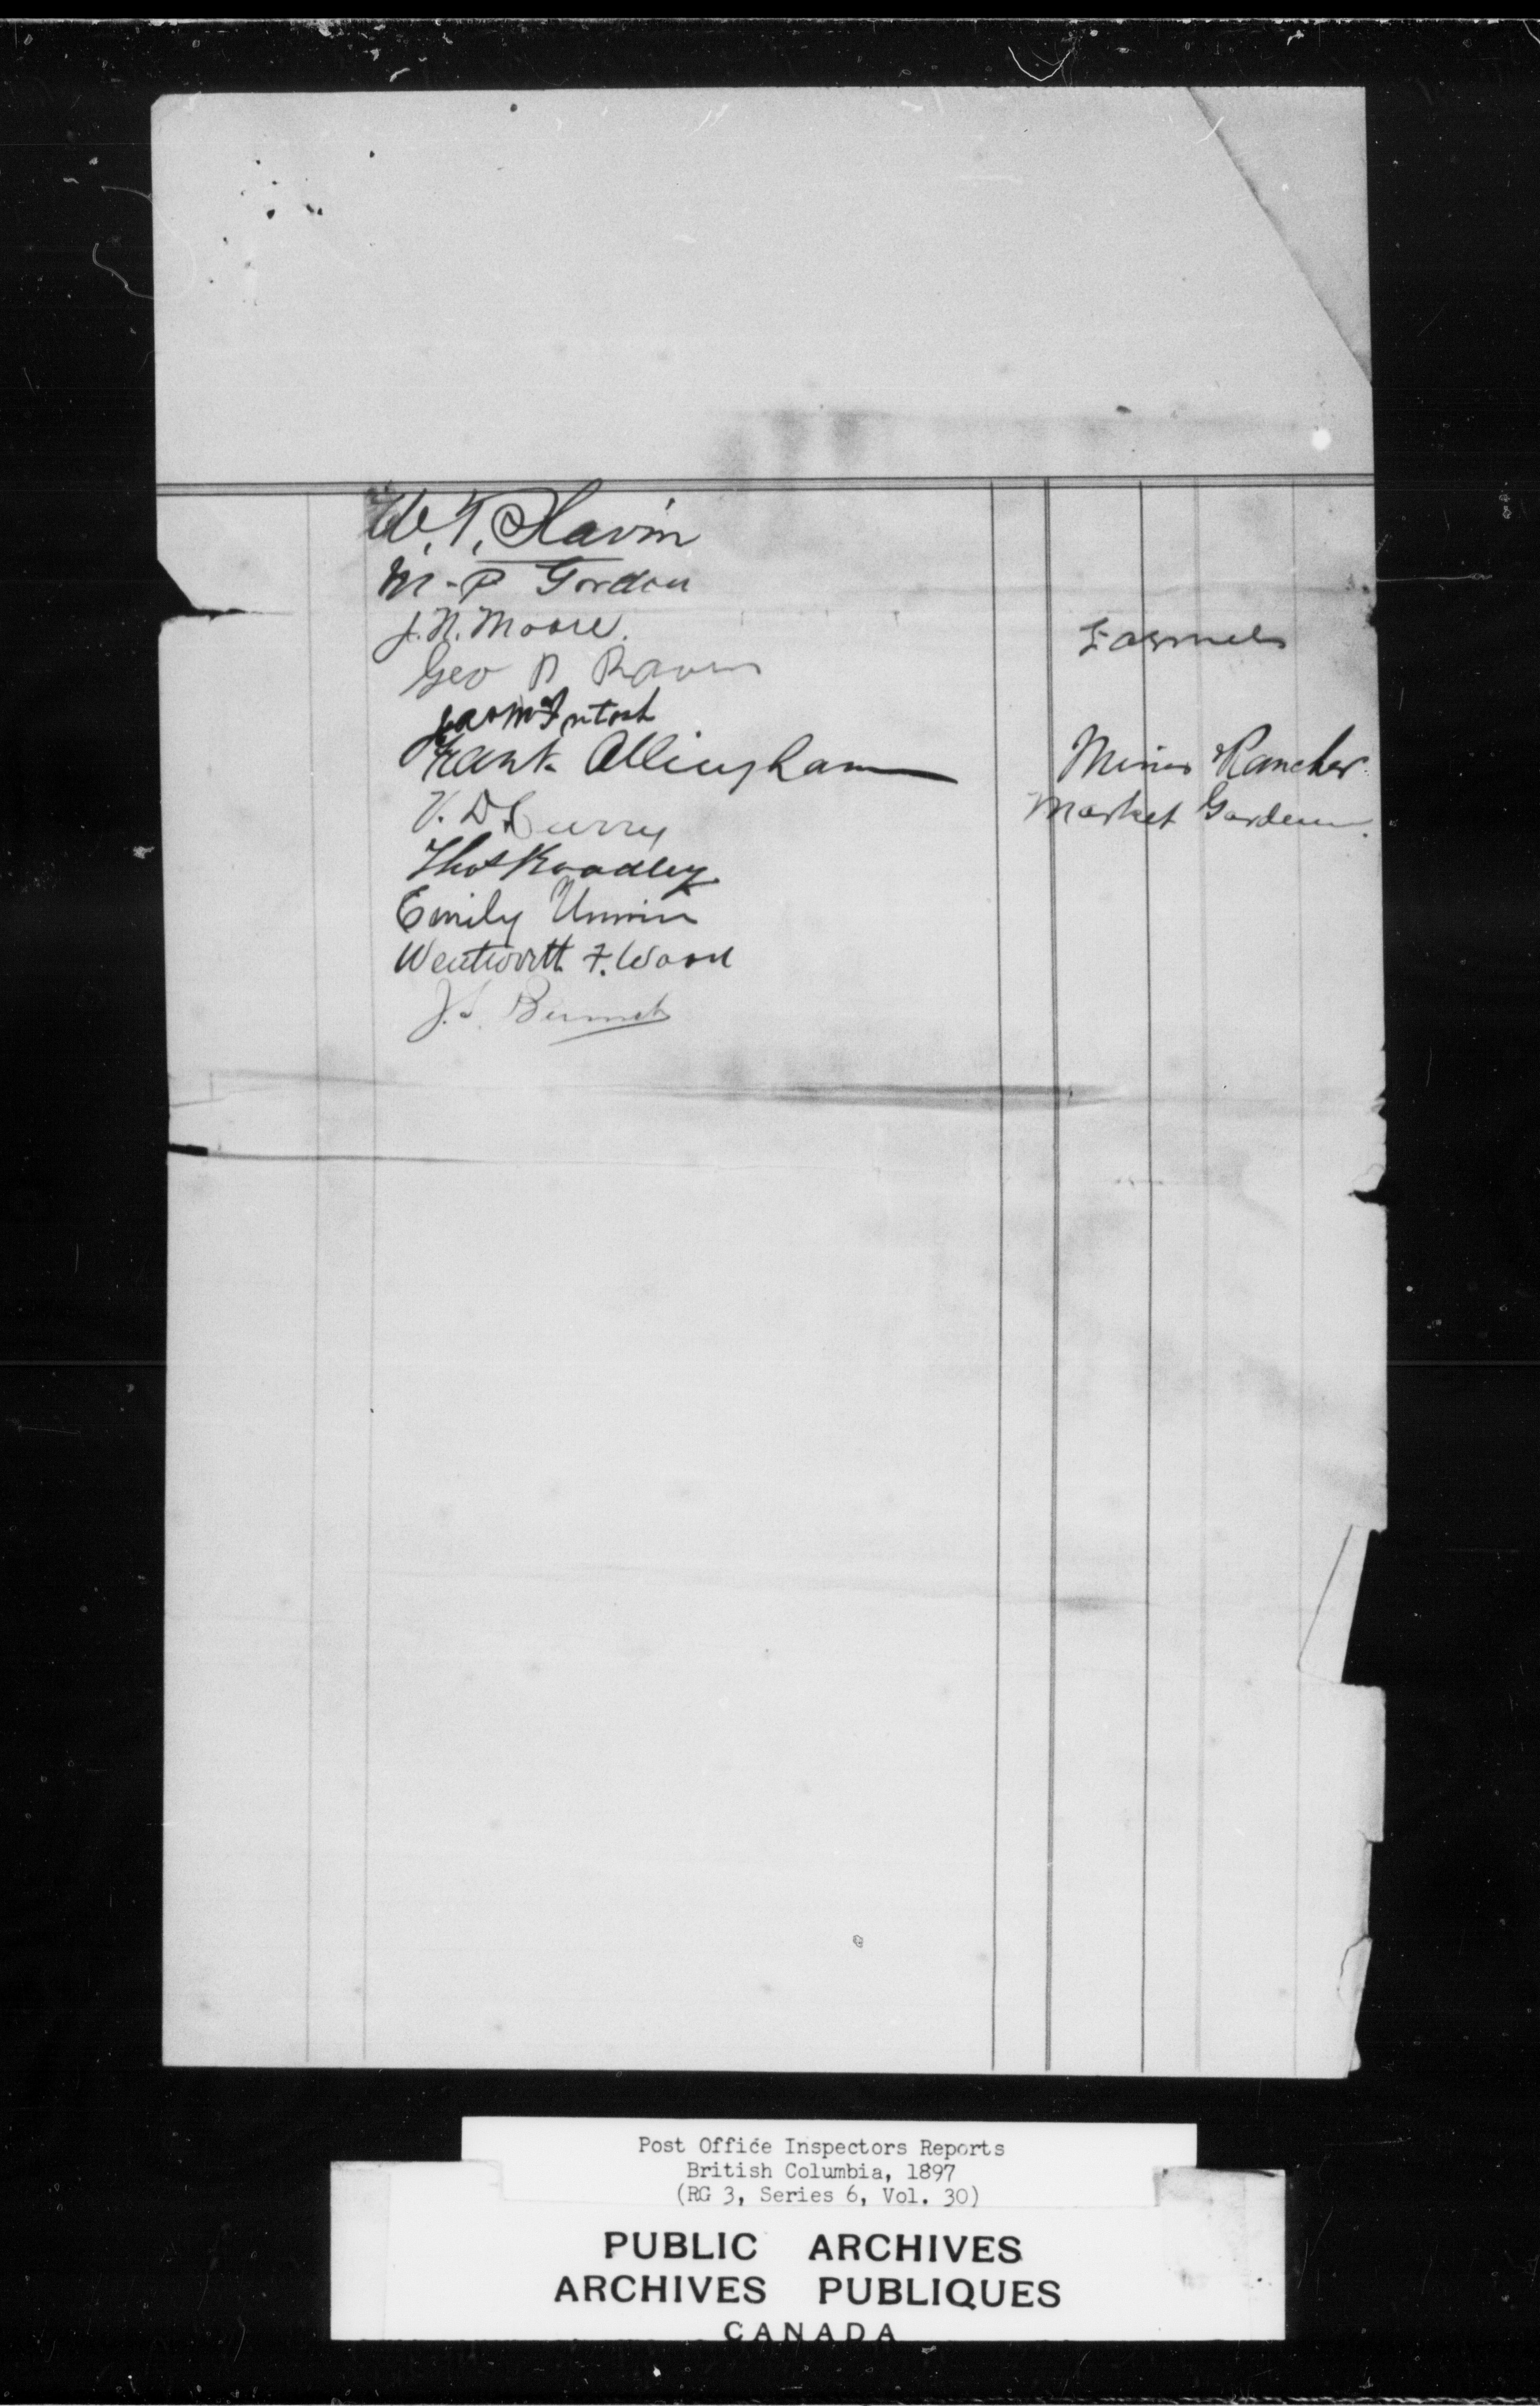 W. T. Slavin
M - P Gordon
J. N. Moore.
Geo Raven Farmer
Jas McIntosh
Frank Allingham Miner & Rancher
V. D. Curry Market Gardener.
Thos Roadley
Emily Unwin
Wentworth F. Wood
J. S. Bennet
Post Office Inspectors Reports
British Columbia, 1897
(RG 3, Series 6, Vol. 30)
PUBLIC ARCHIVES
ARCHIVES PUBLIQUES
CANADA